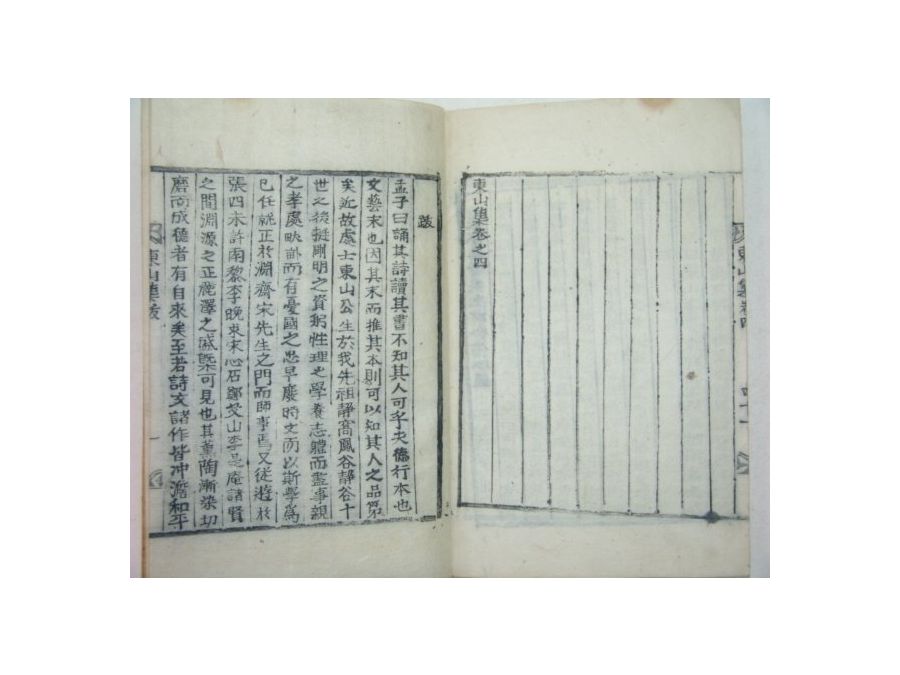 東山集卷之四
東山集卷四
跋
孟子曰誦其詩讀其書不知其人可乎夫德行本也
文藝末也因其末而推其本則可以知其人之品第
矣近故處士東山公生於我先祖靜窩鳳谷靜谷十
世之後挺剛明之資躬性理之學養志體而盡事親
之孝處畎畝而有憂國之忠早廢時文而以斯學爲
已任就正於淵齋宋先生之門而師事焉又從遊於
張四未許南黎李晩求宋心石鄭艾山李是庵諸賢
之間淵源之正麗澤之盛槩可見也其薰陶漸染切
磨而成德者有自來矣至若詩文諸作皆冲澹和平
東山集跋
一